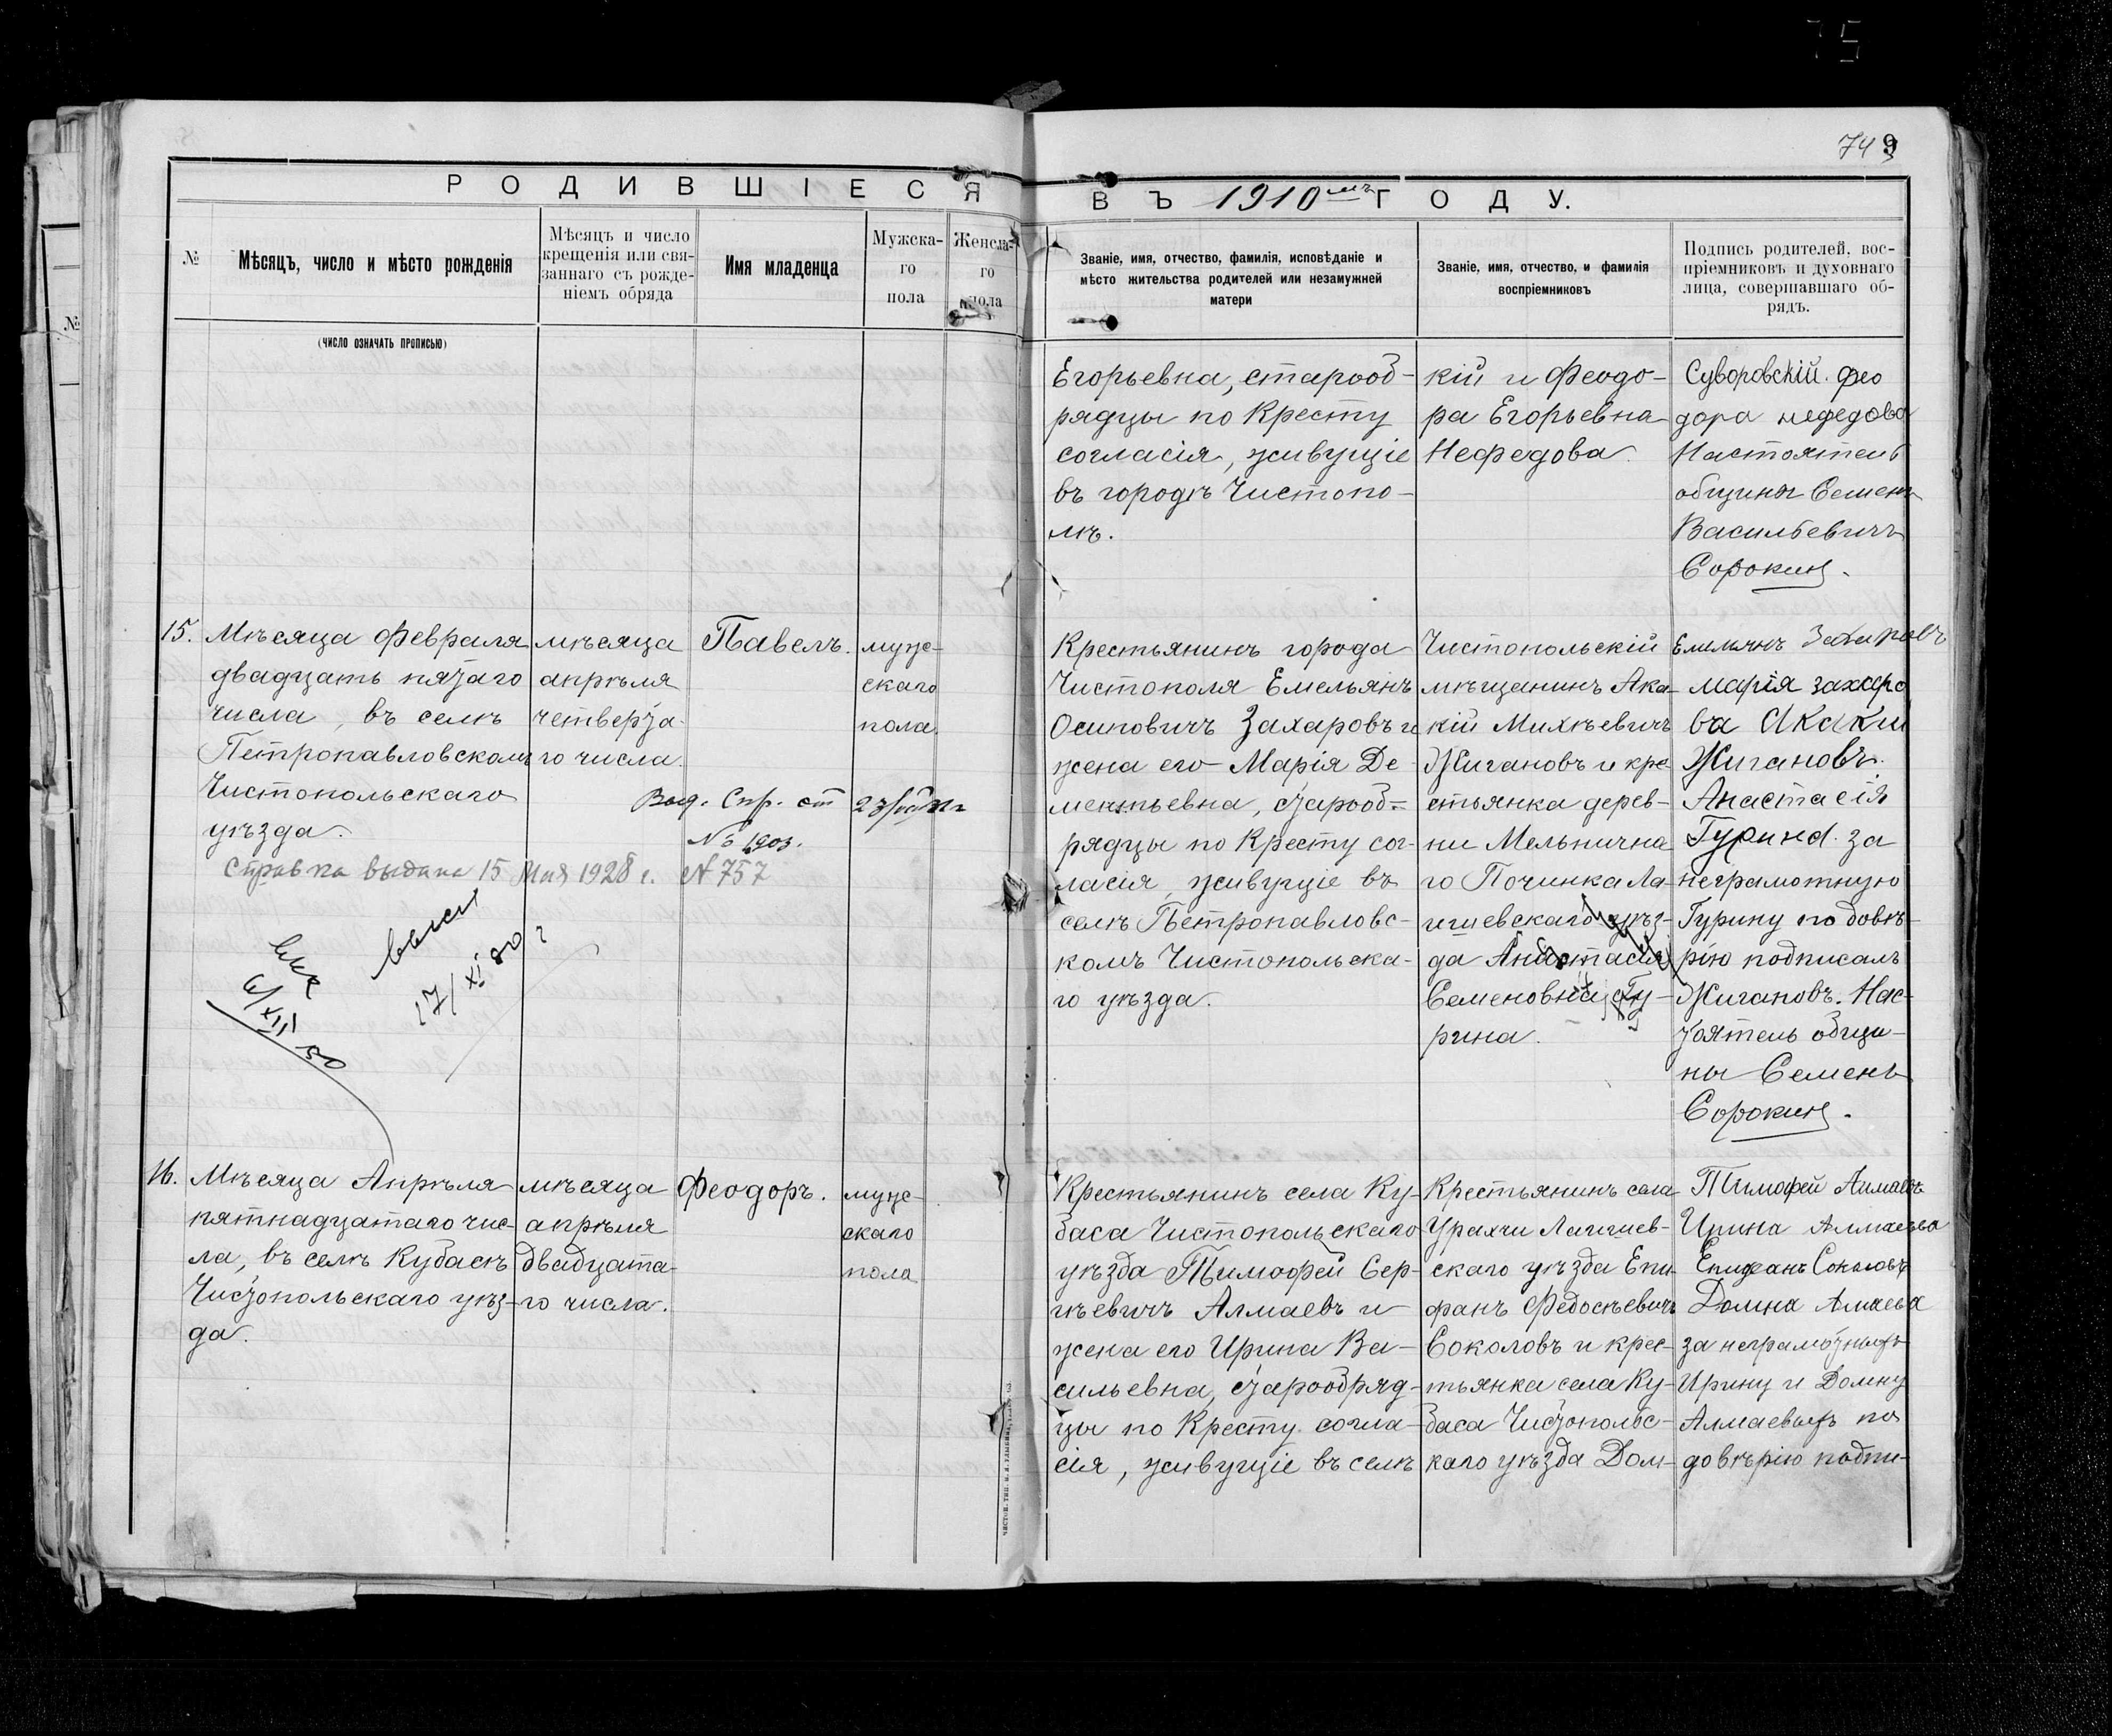 74
РОДИВШІЕСЯ ВЪ 1910мъ ГОДУ.
№
Мѣсяцъ, число и мѣсто рожденія
(число означать прописью)
Мѣсяцъ и число
крещенія или свя-
заннаго съ рожде-
ніемъ обряда
Имя младенца
Мужска-
го
пола
Женска-
го
пола
Званіе, имя, отчество, фамилія, исповѣданіе и
мѣсто жительства родителей или незамужней
матери
Званіе, имя, отчество, и фамилія
воспріемниковъ
Подпись родителей, вос-
пріемниковъ и духовнаго
лица, совершавшаго об-
рядъ.
Егорьевна, старооб-
рядцы по Кресту
согласія, живущіе
въ городѣ Чистопо-
лѣ.
кій и Феодо-
ра Егорьевна
Нефедова
Суворовскій. Фео
дора нефедова
Настоятель
общины Семенъ
Васильевичъ
Сорокин.
15.
Мѣсяца Февраля
двадцать пятаго
числа, въ селѣ
Петропавловскомъ
Чистопольскаго
уѣзда.
мѣсяца
апрѣля
четверта-
го числа.
Павелъ.
муже-
скаго
пола.
Выд. Спр. от
№ 1903.
Справка выдана 15 Мая 1928 г. № 757
17/XI 80 г
6/XII 80
Крестьянинъ города
Чистополя Емельянъ
Осиповичъ Захаровъ и
жена его Марія Де-
ментьевна, старооб-
рядцы по Кресту сог-
ласія, живущіе въ
селѣ Петропавловс-
комъ Чистопольска-
го уѣзда.
Чистопольскій
мѣщанинъ Ака-
кій Михѣевичъ
Жигановъ и кре-
стьянка дерев-
ни Мельнична
го Починка Ла-
ишевскаго уѣз-
да Анастасія
Семеновна Гу-
рина.
Емельянъ Захаровъ
Марія захаро
ва Акакий
Жигановъ.
Анастасія
Гурина. за
неграмотную
Гурину по довѣ-
рію подписалъ
Жигановъ. Нас-
тоятель общи-
ны Семенъ
Сорокин.
16.
Мѣсяца Апрѣля
пятнадцатаго чис-
ла, въ селѣ Кубасѣ
Чистопольскаго уѣз-
да.
мѣсяца
апрѣля
двадцата-
го числа.
Феодоръ.
муже-
скаго
пола
Крестьянинъ села Ку-
баса Чистопольскаго
уѣзда Тимофей Сер-
гѣевичъ Алмаевъ и
жена его Ирина Ва-
сильевна, старообряд-
цы по Кресту согла-
сія, живущіе въ селѣ
Крестьянинъ села
Урахчи Лаишев-
скаго уѣзда Епи-
фанъ Федосѣевичъ
Соколовъ и крес-
тьянка села Ку-
баса Чистопольс-
каго уѣзда Дом-
Тимофей Алмаевъ
Ирина Алмаева
Епифанъ Соколовъ
Домна Алмаева
за неграмотныхъ
Ирину и Домну
Алмаевыхъ по
довѣрію подпи-